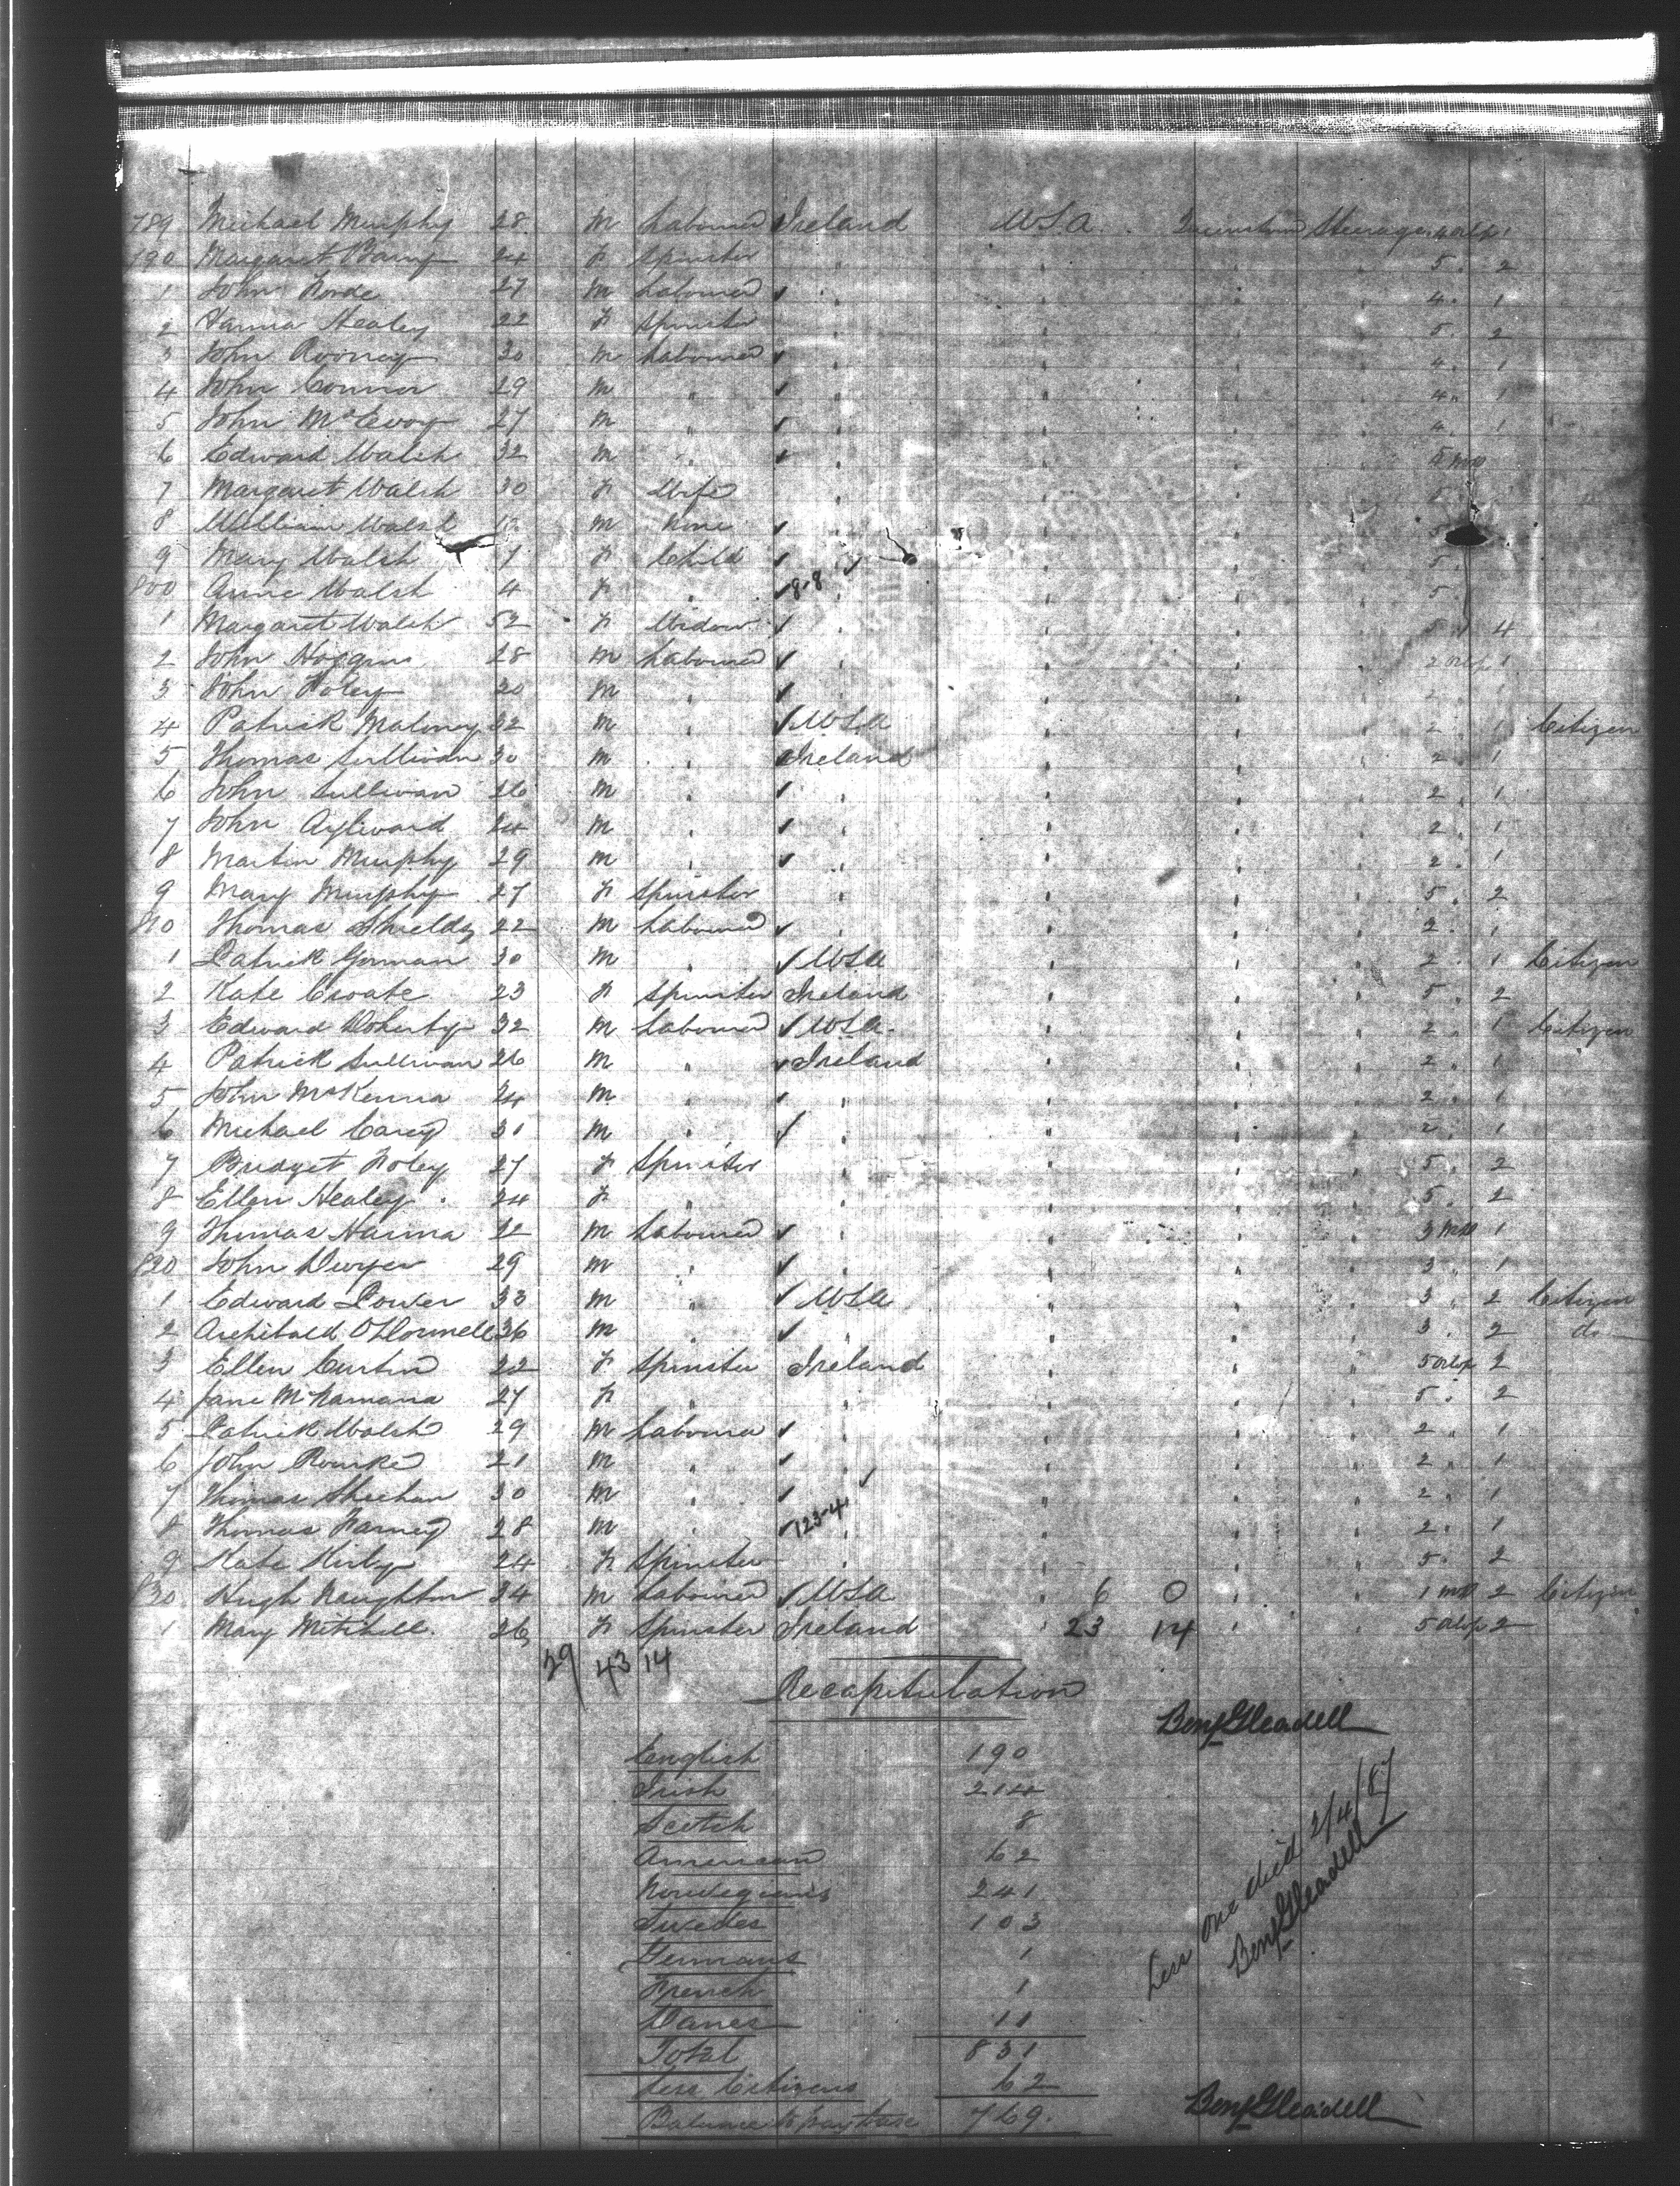 789 Michael Murphy 28 M Labourer Ireland USA Queenstown Steerage 4 Orlop 1
790 Margaret Barry 24 F Spinster " " " " 5 " 2
1 John Forde 27 M Labourer ✓ " " " " 4 " 1
2 Hanna Healey 22 F Spinster " " " " 5 " 2
3 John Rooney 30 M Labourer ✓ " " " " 4 " 1
4 John Connor 29 M " ✓ " " " " 4 " 1
5 John McEvoy 27 M " ✓ " " " " 4 " 1
6 Edward Walsh 32 M " ✓ " " " " 5 MD
7 Margaret Walsh 30 F Wife " " " " 5
8 William Walsh M None ✓ " " " " 5
9 Mary Walsh 1 F Child ✓ " " " 5
800 Anne Walsh 4 F " ✓ 8-8 " " " 5
1 Margaret Walsh 52 F Widow ✓ " " " " 5 " 4
2 John Hoggins 28 M Labourer ✓ " " " " 2 Orlop 1
3 John Foley 20 M " ✓ " " " " 2 " 1
4 Patrick Maloney 32 M " ✓ USA " " " 2 " 1 Citizen
5 Thomas Sullivan 30 M " Ireland " " " 2 " 1
6 John Sullivan 26 M " ✓ " " " " 2 " 1
7 John Aylward 24 M " ✓ " " " " 2 " 1
8 Martin Murphy 29 M " ✓ " " " " 2 " 1
9 Mary Murphy 27 F Spinster " " " " 5 " 2
810 Thomas Shields 22 M Labourer ✓ " " " " 2 " 1
1 Patrick Gorman 30 M " ✓ USA " " " 2 " 1 Citizen
2 Kate Croate 23 F Spinster Ireland " " " 5 " 2
3 Edward Doherty 32 M Labourer ✓ USA " " " 2 " 1 Citizen
4 Patrick Sullivan 26 M " ✓ Ireland " " " 2 " 1
5 John McKenna 24 M " ✓ " " " " 2 " 1
6 Michael Carey 31 M " ✓ " " " " 2 " 1
7 Bridget Foley 27 F Spinster " " " " 5 " 2
8 Ellen Healey 24 F " " " " " 5 " 2
9 Thomas Hanna 32 M Labourer ✓ " " " " 3 MD 1
820 John Dwyer 29 M " ✓ " " " " 3 " 1
1 Edward Power 33 M " ✓ USA " " " 3 " 2 Citizen
2 Archibald O'Donnell 36 M " ✓ " " " " 3 " 2 do
3 Ellen Curtin 22 F Spinster Ireland " " " 5 Orlop 2
4 Jane McNamara 27 F " " " " " 5 " 2
5 Patrick Walsh 29 M Labourer ✓ " " " " 2 " 1
6 John Rourke 21 M " ✓ " " " " 2 " 1
7 Thomas Sheehan 30 M " ✓ " " " " 2 " 1
8 Thomas Varney 28 M " ✓ 123-4 " " " 2 " 1
9 Kate Kirby 24 F Spinster " " " " 5 " 2
830 Hugh Naughton 34 M Labourer ✓ USA " 6 0 " " 1 MD 2 Citizen
1 Mary Mitchell 26 F Spinster Ireland 23 14 " " 5 Orlop 2
29 43 14
Recapitulation
Benj Gleadell
English 190
Irish 214
Scotch 8
American 62
Norwegians 241
Swedes 103
Germans 1
French 1
Danes 11
Total 831
Less Citizens 62
Balance to pay taxes 769
Less one died 2/4/87
Benj Gleadell
Benj Gleadell